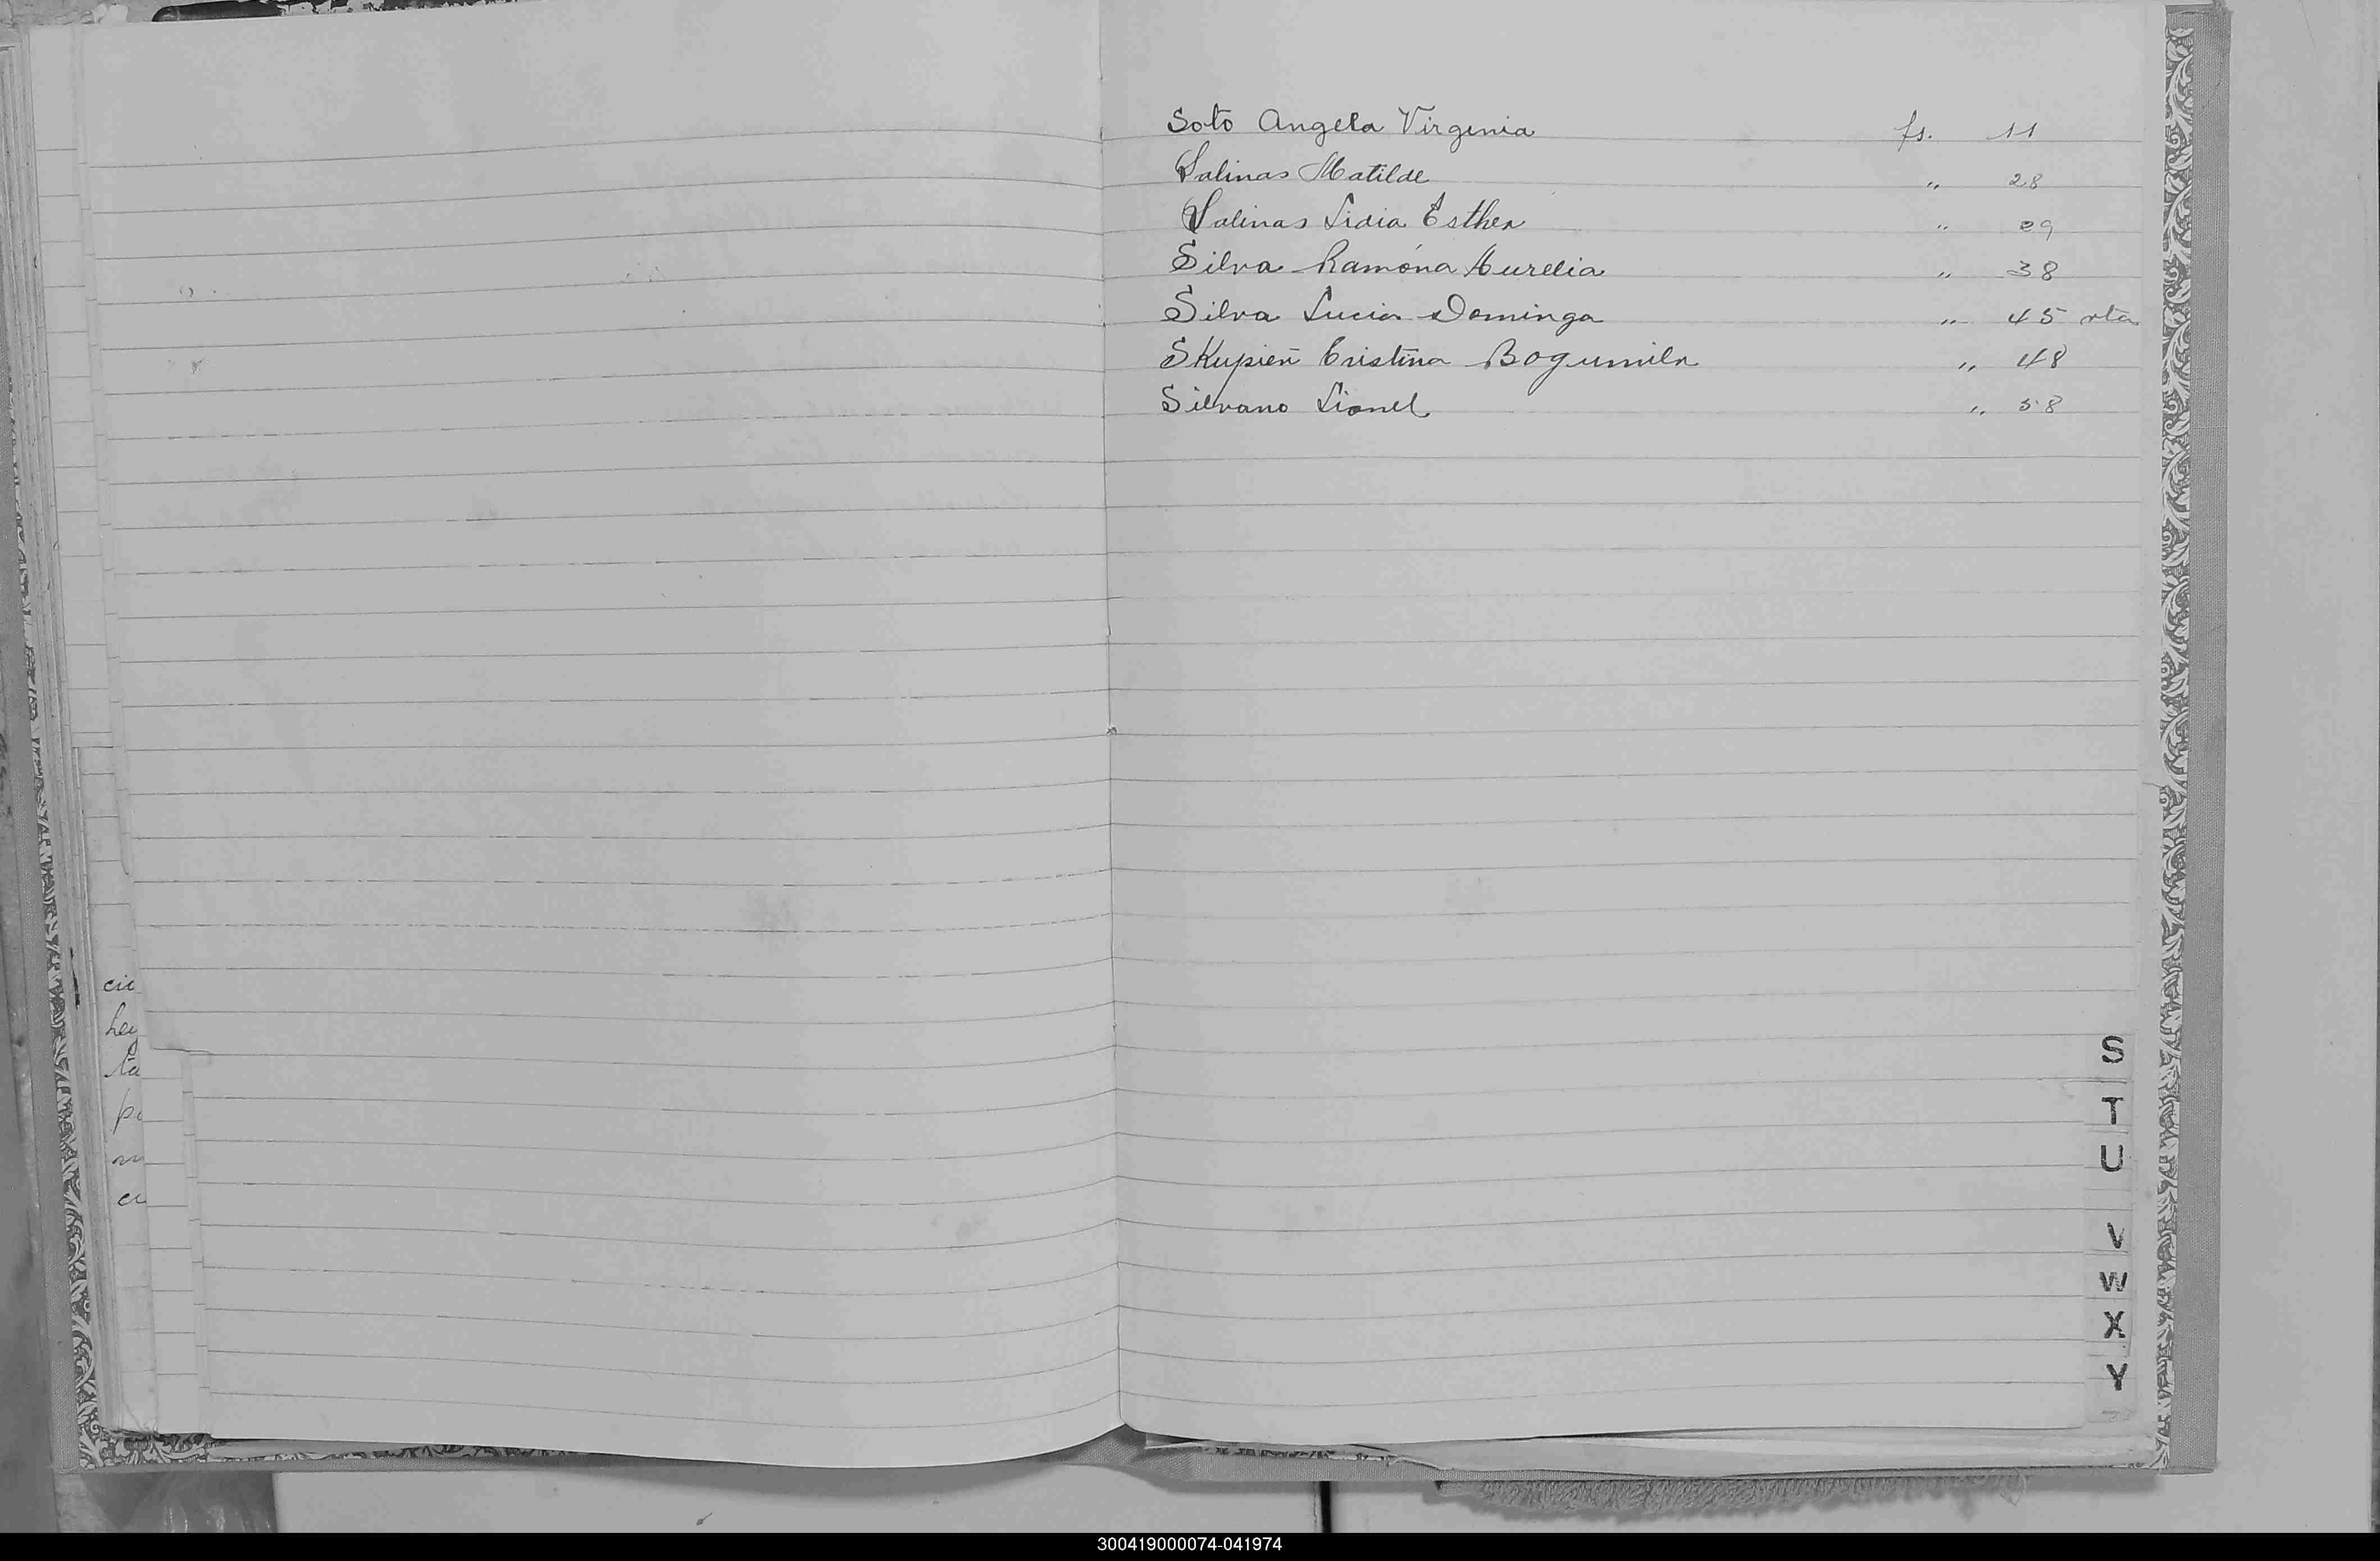 Soto Angela Virginia fs. 11
Salinas Matilde " 28
Salinas Lidia Esther " 29
Silva Ramóna Aurelia " 38
Silva Lucia Dominga " 45 vta
SKupień Cristina Bogumila " 48
Silvano Lionel " 58
cio
hey
ta
S
T
U
V
W
X
Y
300419000074-041974